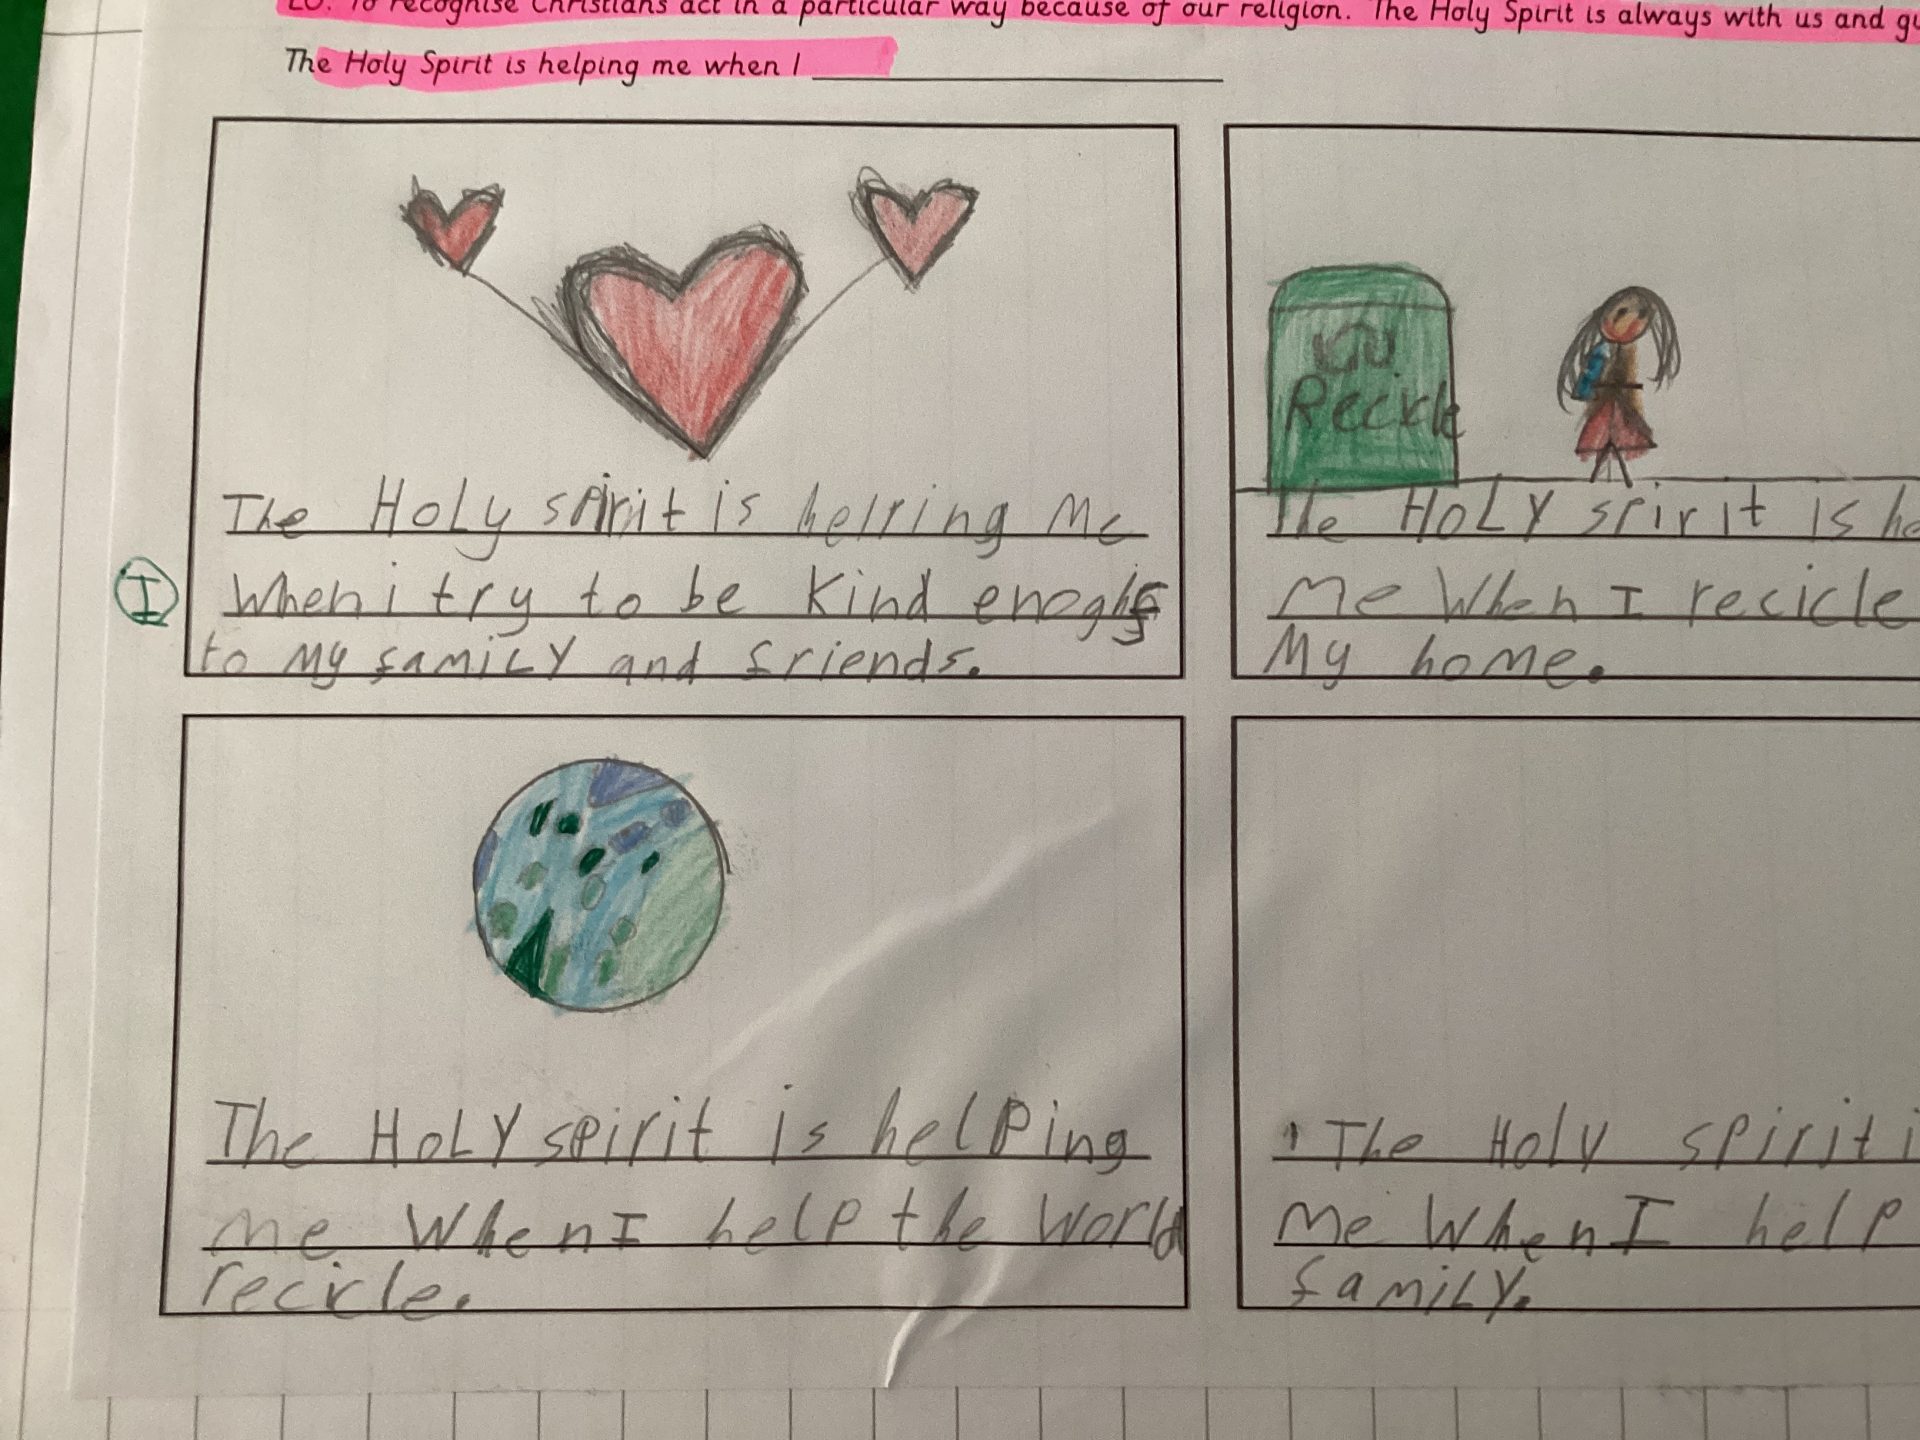 LO: To recognise Christians act in a particular way because of our religion. The Holy Spirit is always with us and
The Holy Spirit is helping me when I
Recicle
The Holy spirit is helping me
I
When i try to be kind
to my family and friends.
The HOLY spirit is
me When I recicle
My home.
The HOLY spirit is helping
me When I help the World
recicle.
The Holy spirit
me When I help
family.